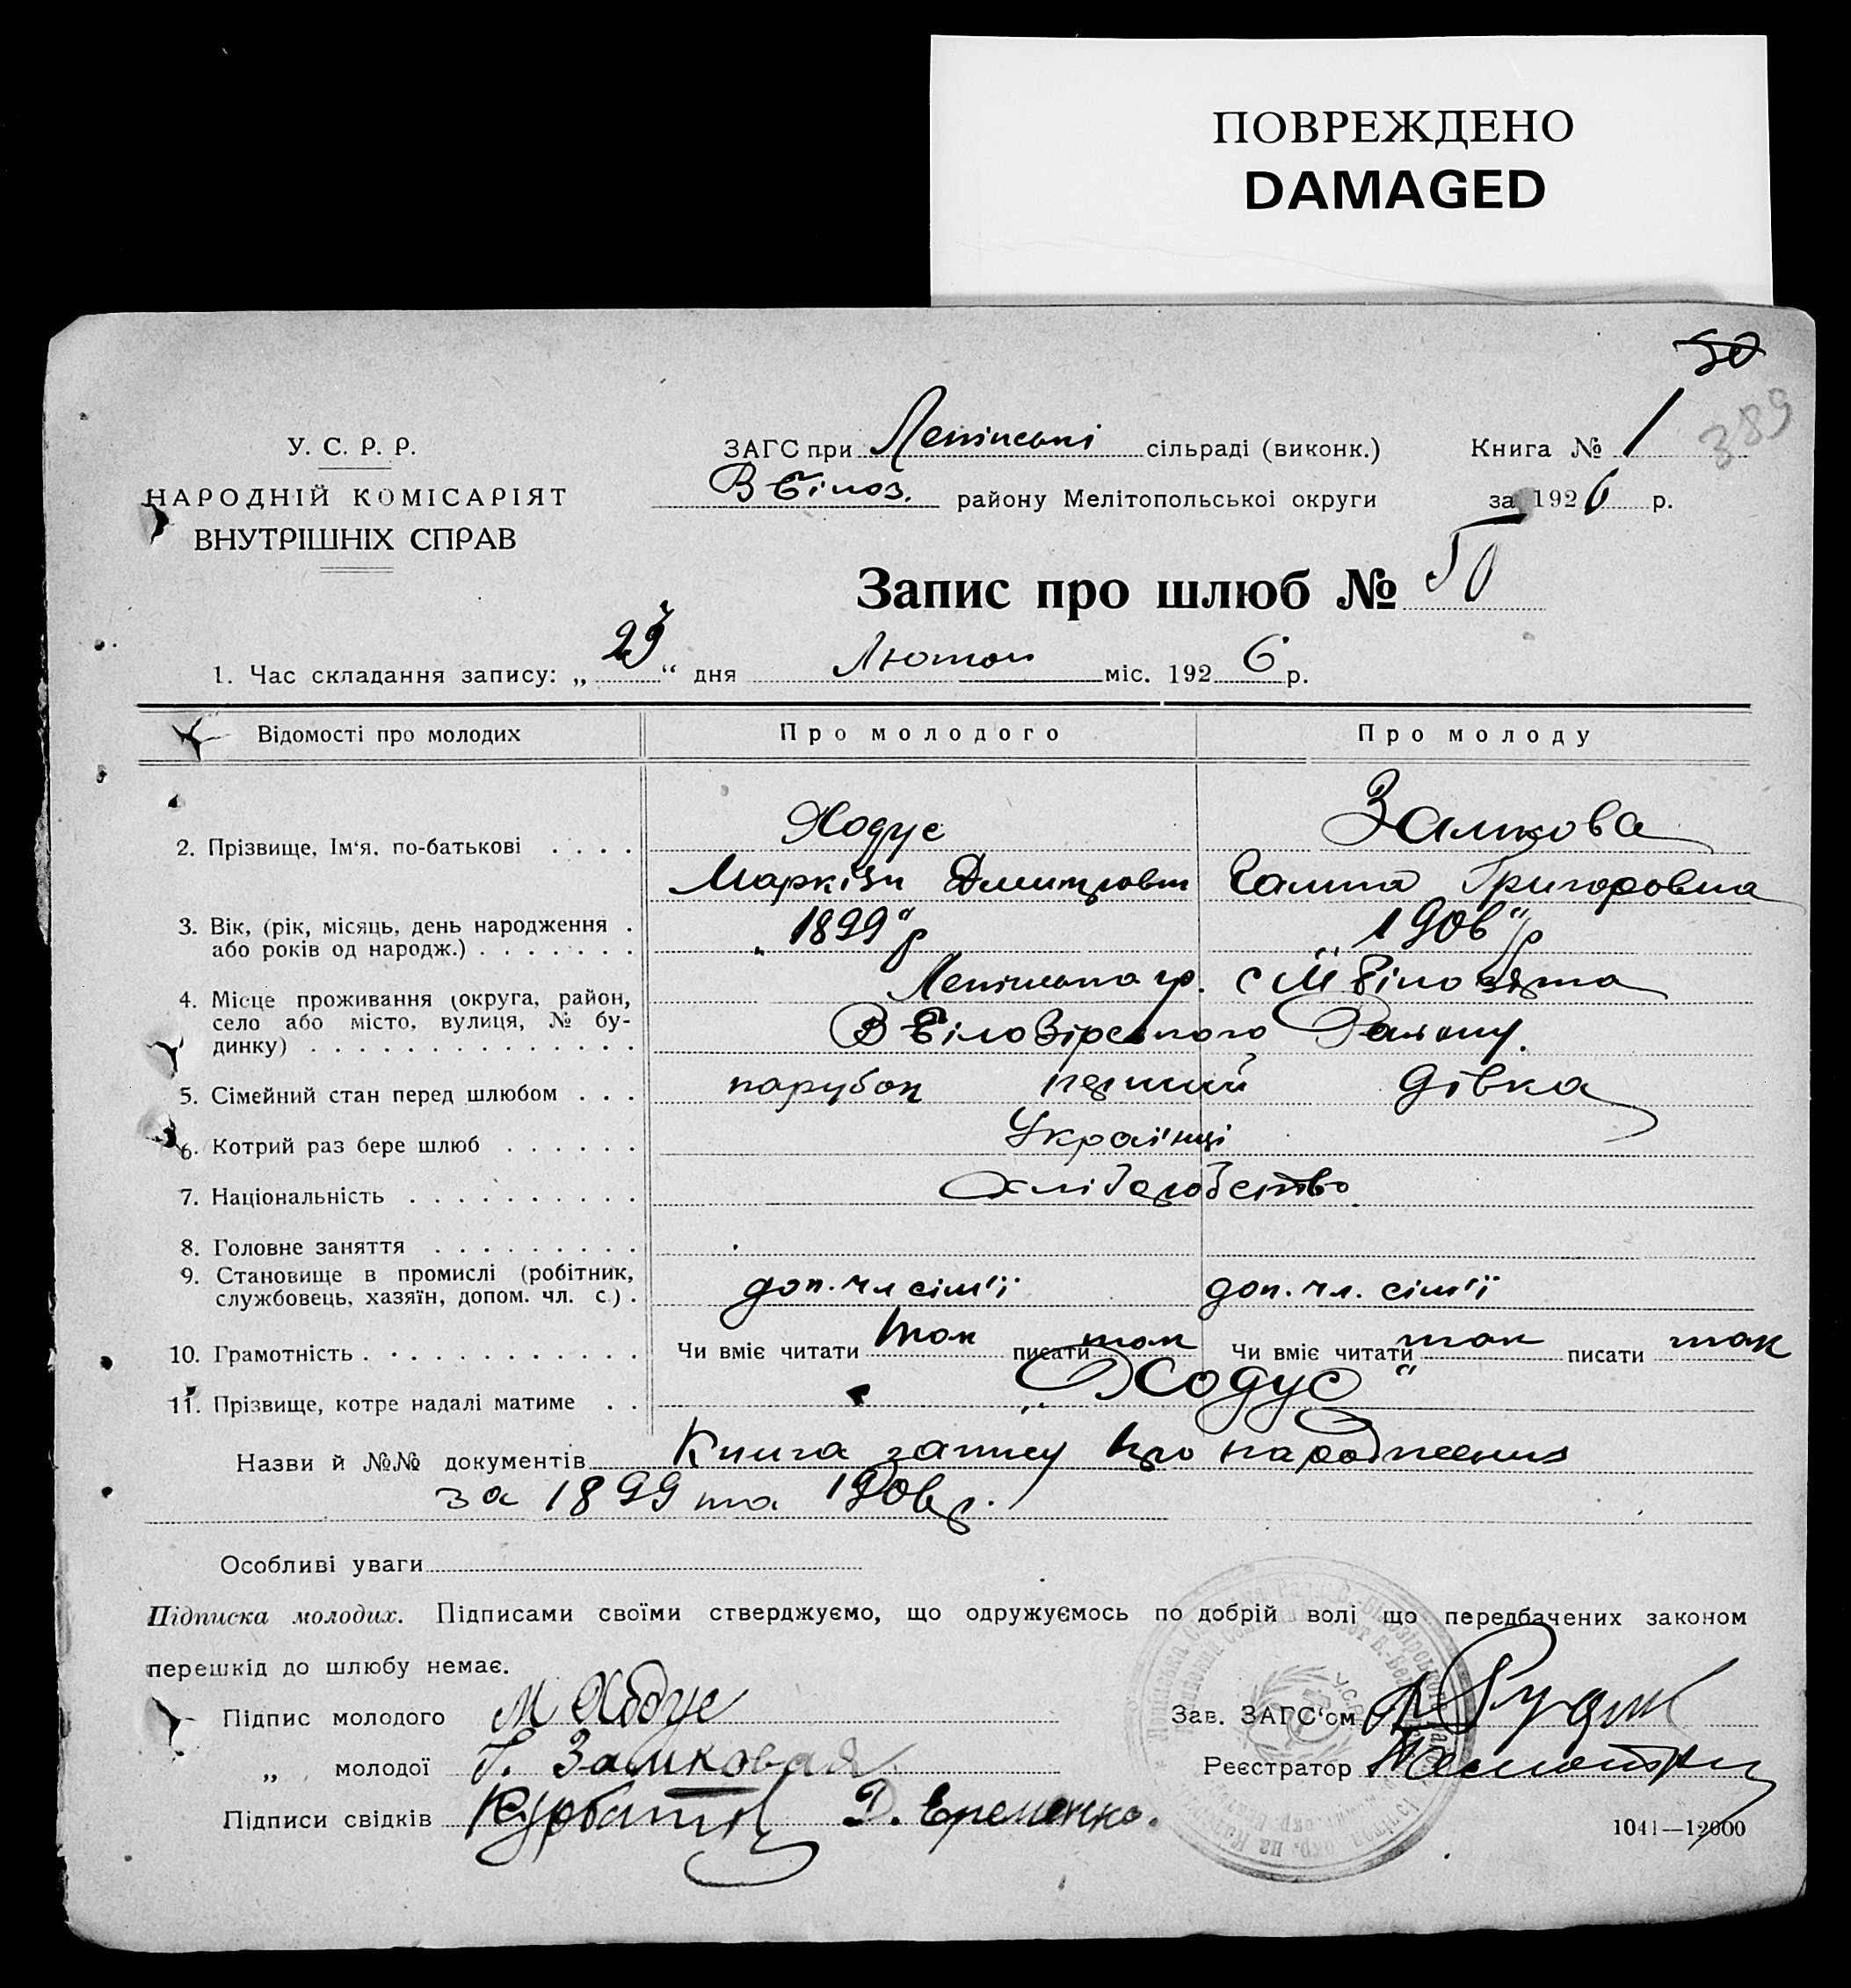 ПОВРЕЖДЕНО
DAMAGED
50
389
У. С. Р. Р.
НАРОДНІЙ КОМІСАРІЯТ
ВНУТРІШНІХ СПРАВ
ЗАГС при Ленінські сільраді (виконк.) Книга № 1
В Білоз. району Мелітопольської округи за 1926 р.
Запис про шлюб № 50
1. Час складання запису: „ “ дня Лютого міс. 1926 р.
Відомості про молодих Про молодого Про молоду
2. Прізвище, Ім‘я, по-батькові Ходус Замкова
Дмитрович Галина Григоровна
3. Вік, (рік, місяць, день народження або років од народж.) „1899“ р „1906“ р
4. Місце проживання (округа, район, село або місто, вулиця, № будинку) Ленінська гр. с
В Білозірського Району.
5. Сімейний стан перед шлюбом парубок перший дівка
6. Котрий раз бере шлюб Українці
7. Національність Хліборобство
8. Головне заняття
9. Становище в промислі (робітник, службовець, хазяїн, допом. чл. с.) доп. чл сім'ї доп. чл. сім'ї
10. Грамотність Чи вміє читати так писати так Чи вміє читати так писати так
11. Прізвище, котре надалі матиме „Ходус“
Назви й №№ документів Книга запису про народження
за 1899 та 1906 р.
Особливі уваги
Підписка молодих. Підписами своїми стверджуємо, що одружуємось по добрій волі що передбачених законом
перешкід до шлюбу немає.
Підпис молодого М Ходус Зав. ЗАГС‘ом
„ молодої Г. Замковая Реєстратор
Підписи свідків Д. Еременко.
1041—12000